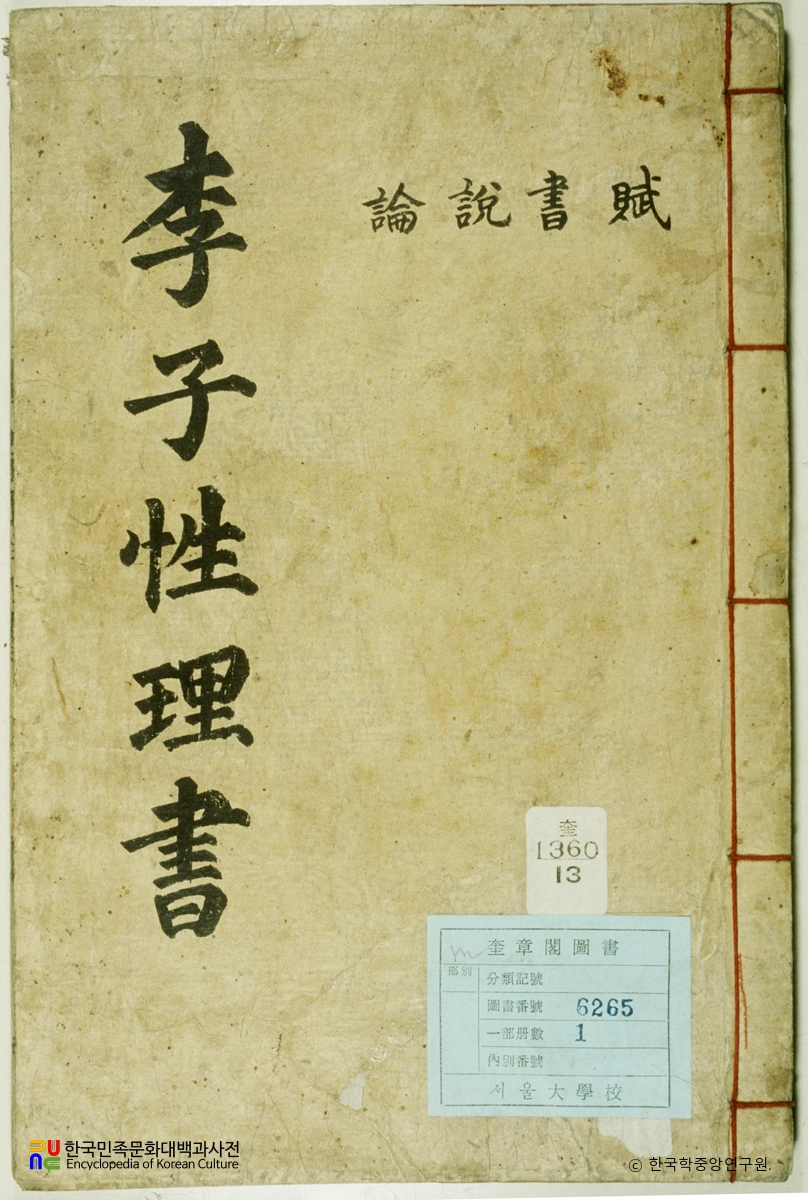 賦書說論
李子性理書
奎
1360
13
奎章閣圖書
部別
分類記號
圖書番號 6265
一部册數 1
內別番號
서울大學校
한국민족문화대백과사전
Encyclopedia of Korean Culture
© 한국학중앙연구원.